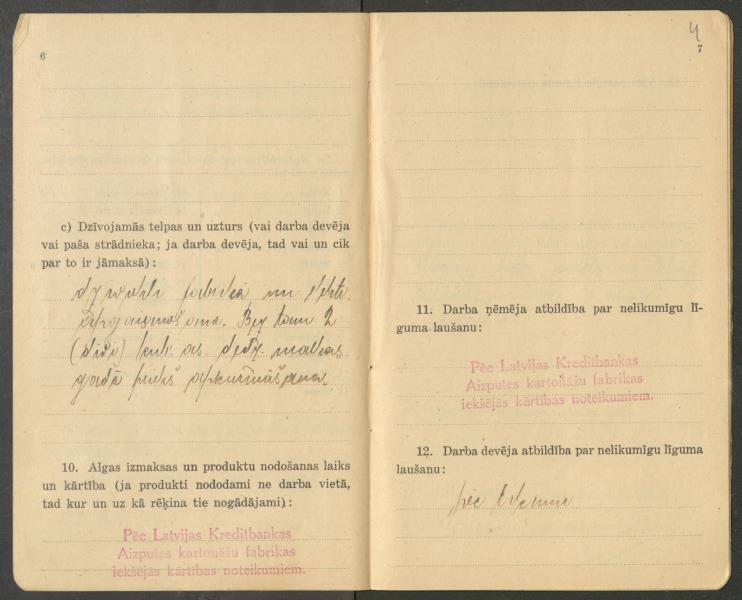 6
c) Dzīvojamās telpas un uzturs (vai darba devēja
vai paša strādnieka; ja darba devēja, tad vai un cik
par to ir jāmaksā):
un
Bez tam 2
(divi) malkas
gadā
10. Algas izmaksas un produktu nodošanas laiks
un kārtība (ja produkti nododami ne darba vietā,
tad kur un uz kā rēķina tie nogādājami):
Pēc Latvijas Kreditbankas
Aizputes kartonāžu fabrikas
iekšējās kārtības noteikumiem.
4
7
11. Darba ņēmēja atbildība par nelikumīgu lī-
guma laušanu:
Pēc Latvijas Kreditbankas
Aizputes kartonāžu fabrikas
iekšējās kārtības noteikumiem.
12. Darba devēja atbildība par nelikumīgu līguma
laušanu:
pēc